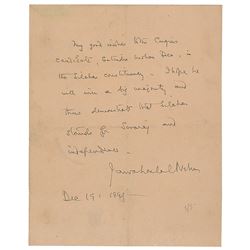 My good wishes to the Congress
candidate, Satindra Mohan Dev, in
the Silchar constituency. I hope he
will win a big majority and
thus demonstrate that Silchar
stands for Swaraj and
independence.
Jawaharlal Nehru
Dec 19, 1945